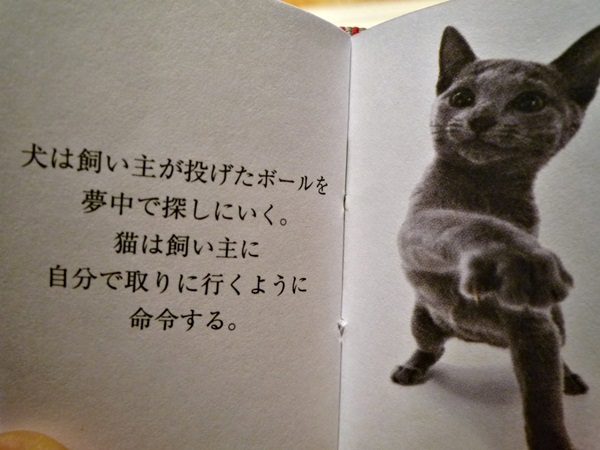 犬は飼い主が投げたボールを
夢中で探しにいく。
猫は飼い主に
自分で取りに行くように
命令する。